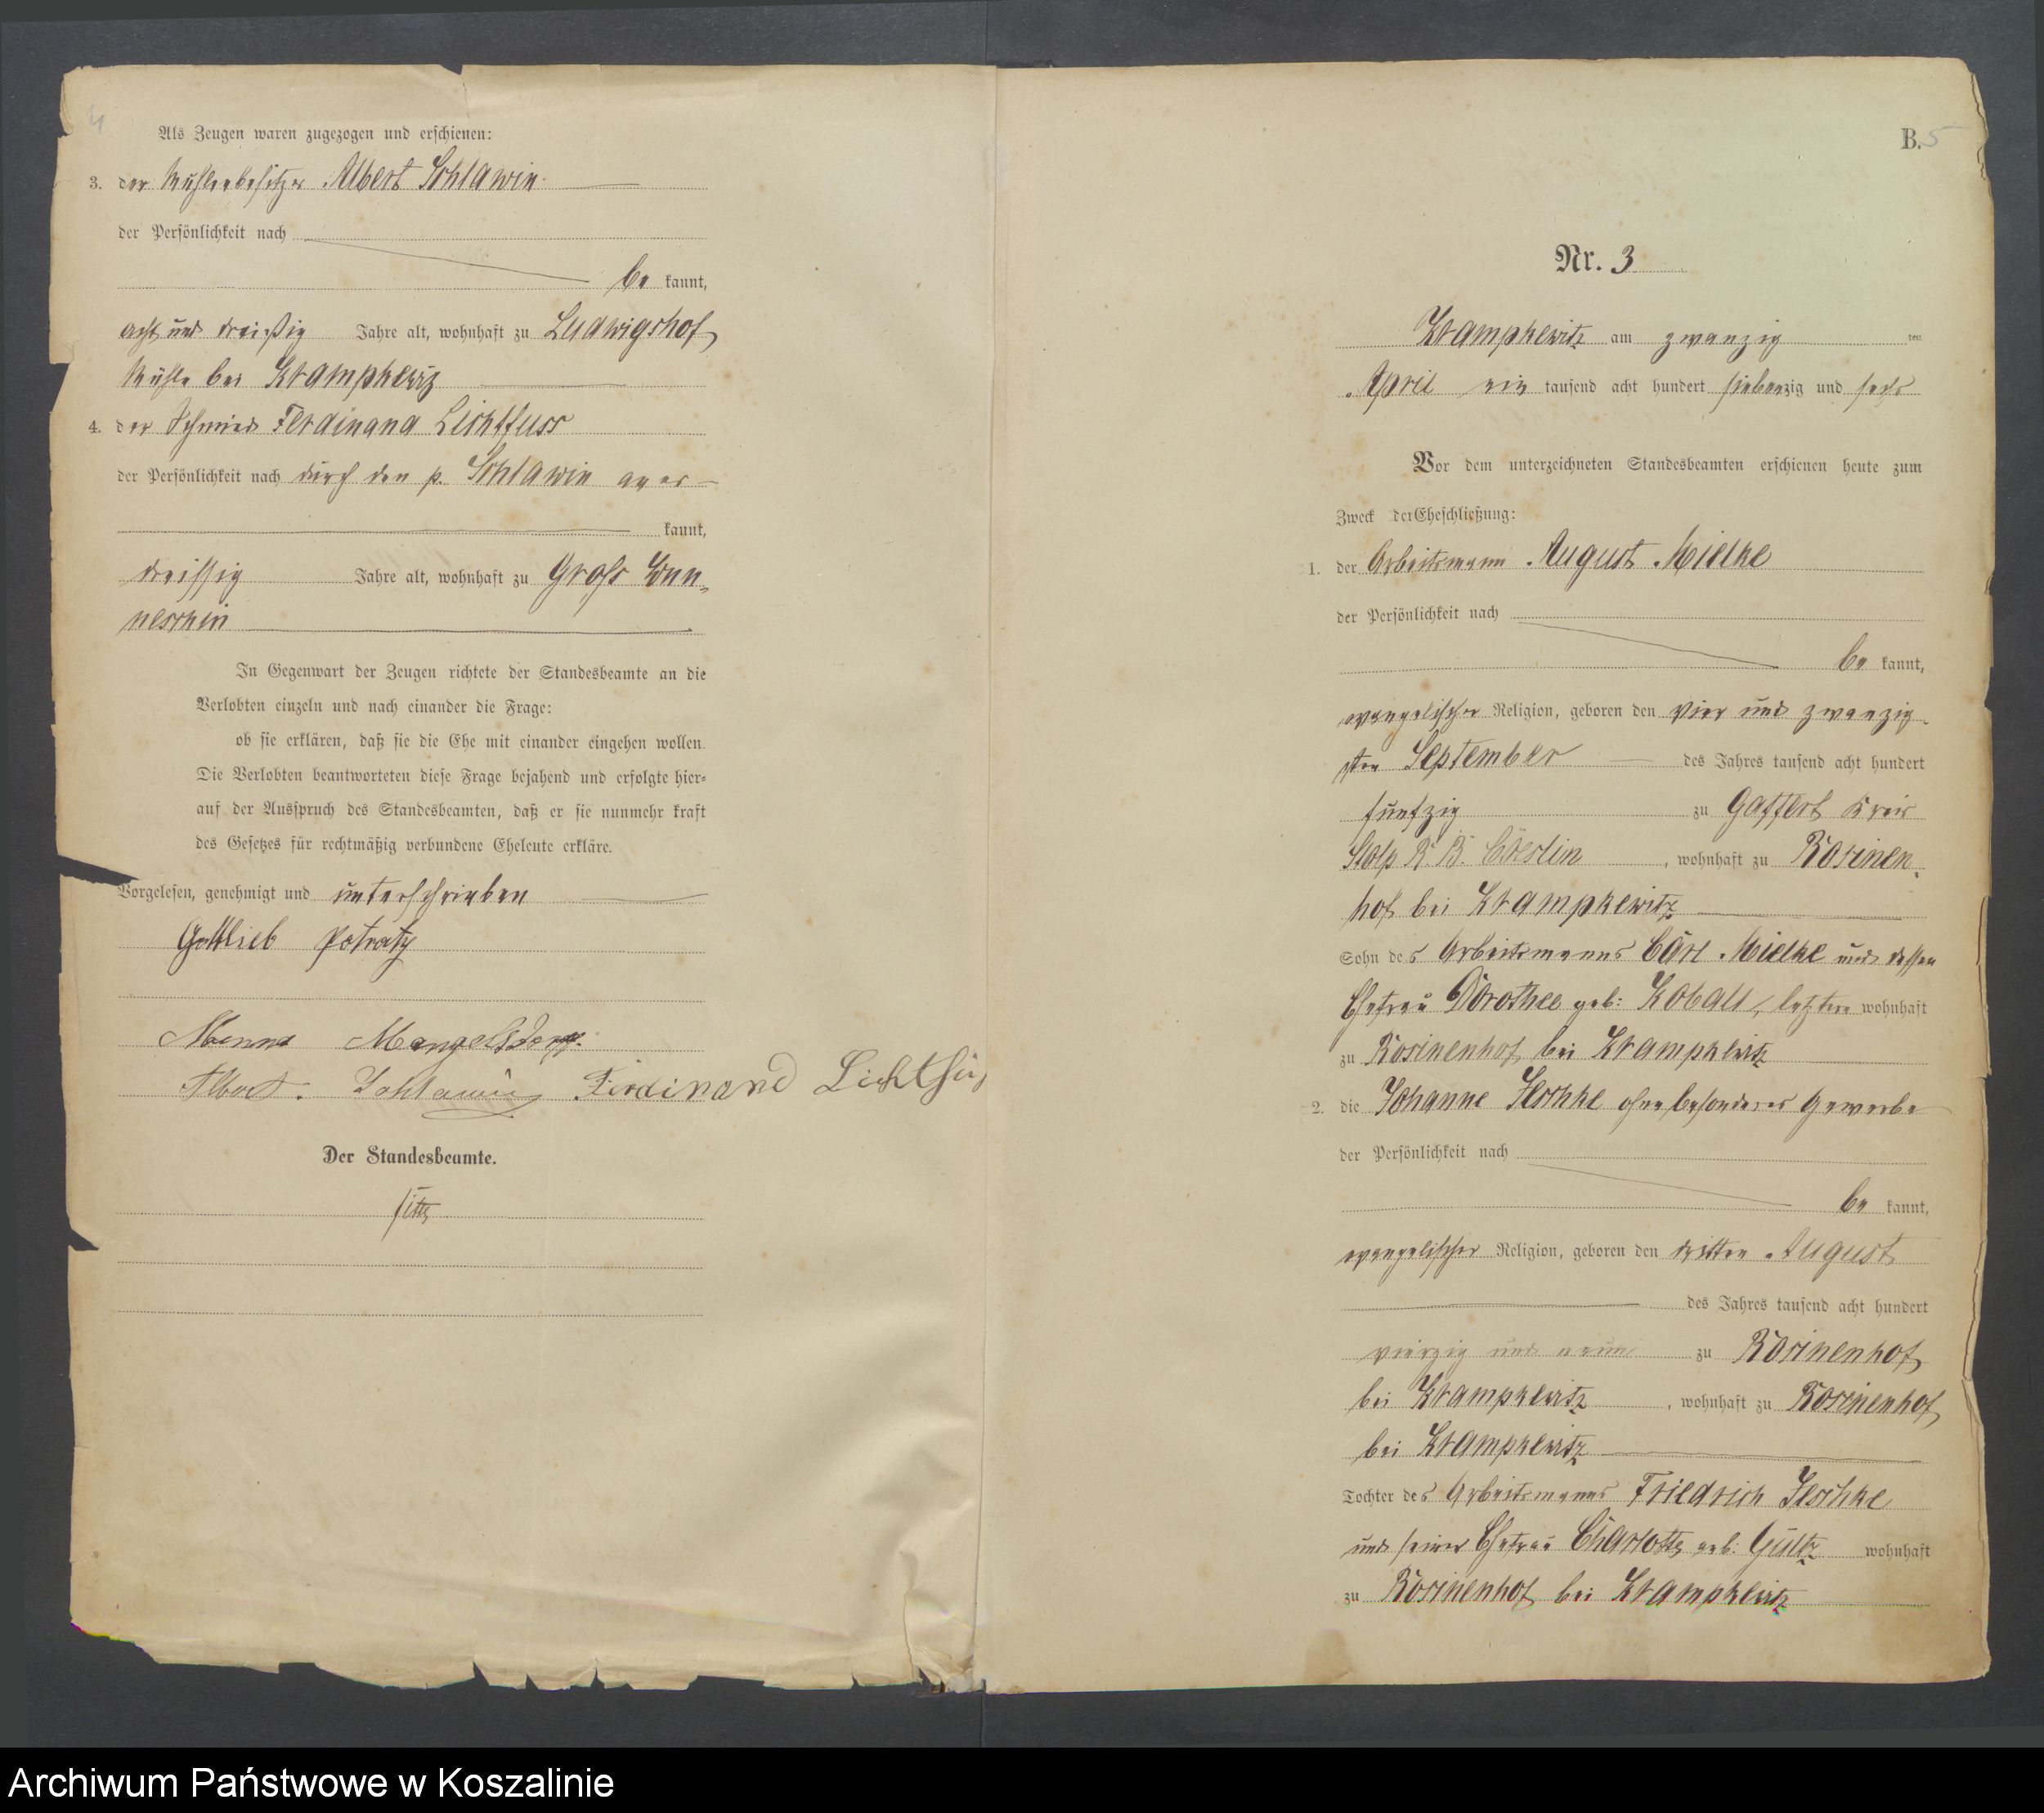 4
Als Zeugen waren zugezogen und erschienen:
3. der Mühlenbesitzer Albert Schlawin
der Persönlichkeit nach
be kannt,
acht und dreißig Jahre alt, wohnhaft zu Ludwigshof
Mühle bei Krampkewitz
4. der Schmied Ferdinand Lichtfuss
der Persönlichkeit nach durch den p. Schlawin aner-
kannt,
dreissig Jahre alt, wohnhaft zu Gross Wun-
neschin
In Gegenwart der Zeugen richtete der Standesbeamte an die
Verlobten einzeln und nach einander die Frage:
ob sie erklären, daß sie die Ehe mit einander eingehen wollen.
Die Verlobten beantworteten diese Frage bejahend und erfolgte hier-
auf der Ausspruch des Standesbeamten, daß er sie nunmehr kraft
des Gesetzes für rechtmäßig verbundene Eheleute erkläre.
Vorgelesen, genehmigt und unterschrieben
Gottlieb Potratz
Menne Mengelsdorf
Albert Schlawin Ferdinand Lichtfus
Der Standesbeamte.
B. 5
Nr. 3
Krampkewitz am zwanzig ten
April ein tausend acht hundert siebenzig und sechs
Vor dem unterzeichneten Standesbeamten erschienen heute zum
Zweck der Eheschließung:
1. der Arbeitsmann August Mielke
der Persönlichkeit nach
be kannt,
evangelischer Religion, geboren den vier und zwanzig-
sten September des Jahres tausend acht hundert
funfzig zu Gaffert Kreis
Stolp R. B. Cöslin, wohnhaft zu Rosinen-
hof bei Krampkewitz
Sohn des Arbeitsmanns Carl Mielke und dessen
Ehefrau Dorothee geb: Koball, letztere wohnhaft
zu Rosinenhof bei Krampkewitz
2. die Johanne Jeschke ohne besonderes Gewerbe
der Persönlichkeit nach
be kannt,
evangelischer Religion, geboren den dritten August
des Jahres tausend acht hundert
vierzig und neun zu Rosinenhof
bei Krampkewitz, wohnhaft zu Rosinenhof
bei Krampkewitz
Tochter des Arbeitsmanns Friedrich Jeschke
und seiner Ehefrau Charlotte geb: Gültz wohnhaft
zu Rosinenhof bei Krampkewitz
Archiwum Państwowe w Koszalinie